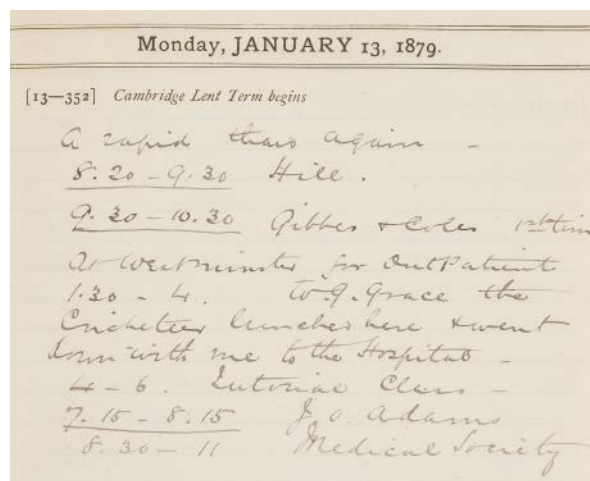 Monday, JANUARY 13, 1879.
[13—352] Cambridge Lent Term begins
A rapid thaw again -
8.20 - 9.30 Hill.
9.30 - 10.30 Gibbes & Coles 1st time
At Westminster for OutPatients
1.30 - 4. W.G. Grace the
Cricketer lunched here & went
down with me to the Hospital -
4 - 6. Tutorial Class -
7.15 - 8.15 J. O. Adams
8.30 - 11 Medical Society